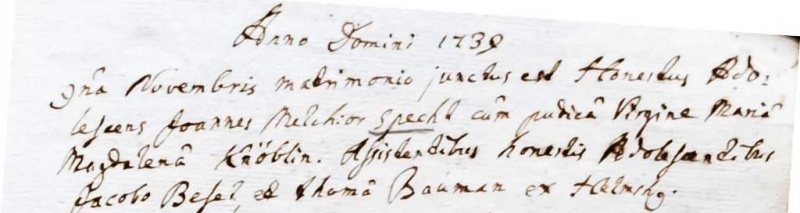 Anno Domini 1739
9na Novembris matrimonio junctus est Honestus Ado-
lescens Joannes Melchior Specht cum pudicâ Virgine Mariâ
Magdalenâ Knöblin. Assistentibus honestis Adolescentibus
Jacobo Besel, et Thomâ Bauman ex